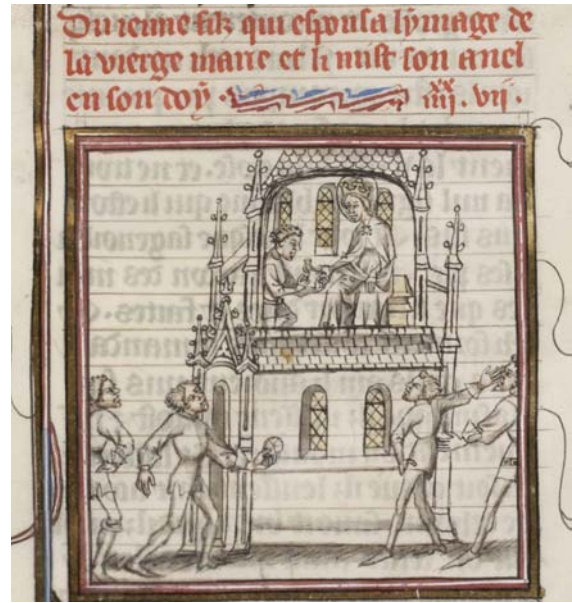 Du ieune filz qui espousa lymage de
la vierge marie et li mist son anel
en son doy. iiii xx. vii.